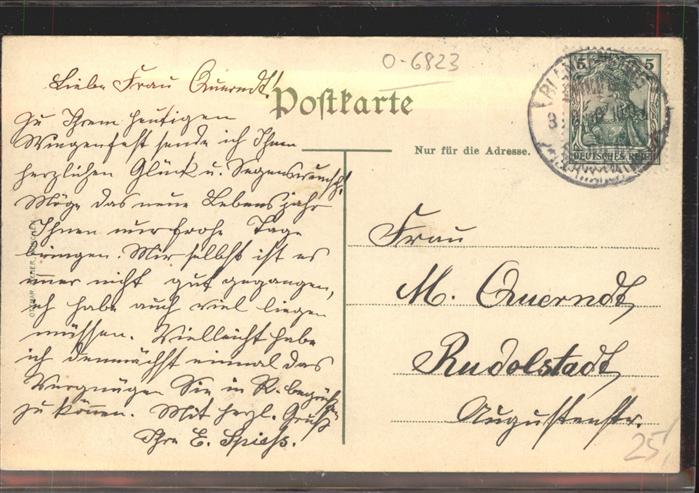 O-6823
Liebe Frau Querndt!
Postkarte
Zu Ihrem heutigen
Wiegenfest sende ich Ihnen
herzlichen Glück u. Segenswunsch!
Möge das neue Lebensjahr
Ihnen nur frohe Tage
bringen. Mir selbst ist es
immer nicht gut gegangen,
ich habe auch viel liegen
müssen. Vielleicht habe
ich demnächst einmal das
Vergnügen Sie in R. begrüßen
zu können. Mit herzl. Gruß
Ihre E. Spieß.
Nur für die Adresse.
5 5
DEUTSCHES REICH
Frau
M. Querndt,
Rudolstadt,
Augustenstr.
25,-